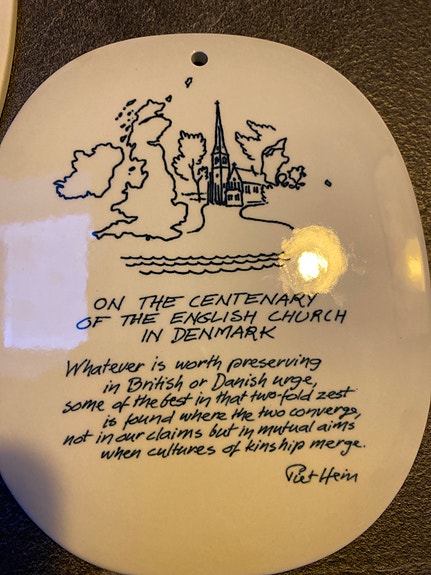 ON THE CENTENARY
OF THE ENGLISH CHURCH
IN DENMARK
Whatever is worth preserving
in British or Danish urge,
some of the best in that two-fold zest
is found where the two converge,
not in our claims but in mutual aims
when cultures of kinship merge.
Piet Hein